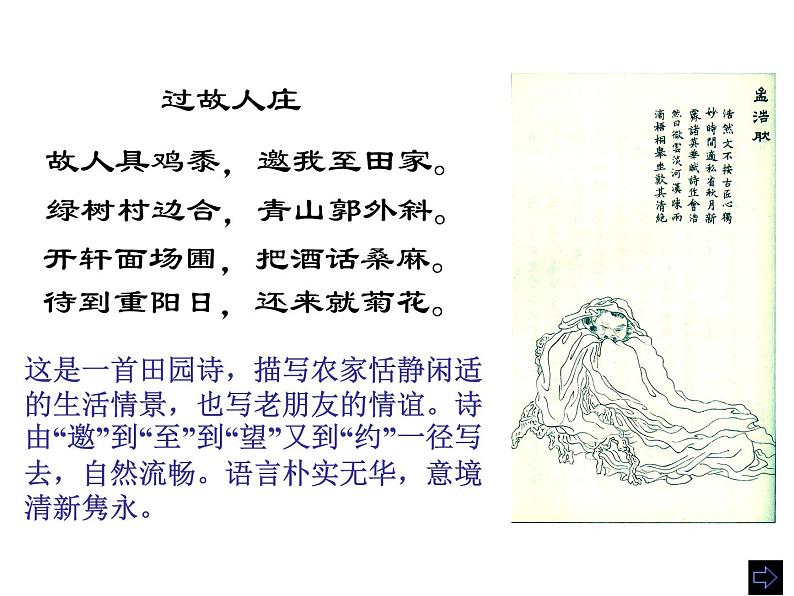 过故人庄
故人具鸡黍，邀我至田家。
绿树村边合，青山郭外斜。
开轩面场圃，把酒话桑麻。
待到重阳日，还来就菊花。
这是一首田园诗，描写农家恬静闲适
的生活情景，也写老朋友的情谊。诗
由“邀”到“至”到“望”又到“约”一径写
去，自然流畅。语言朴实无华，意境
清新隽永。
孟浩耿
浩然文不按古匠心獨
妙時間適私省秋月新
霽諸英華賦詩作會浩
然曰微雲淡河漢疎雨
滴梧桐舉坐歎其清絶